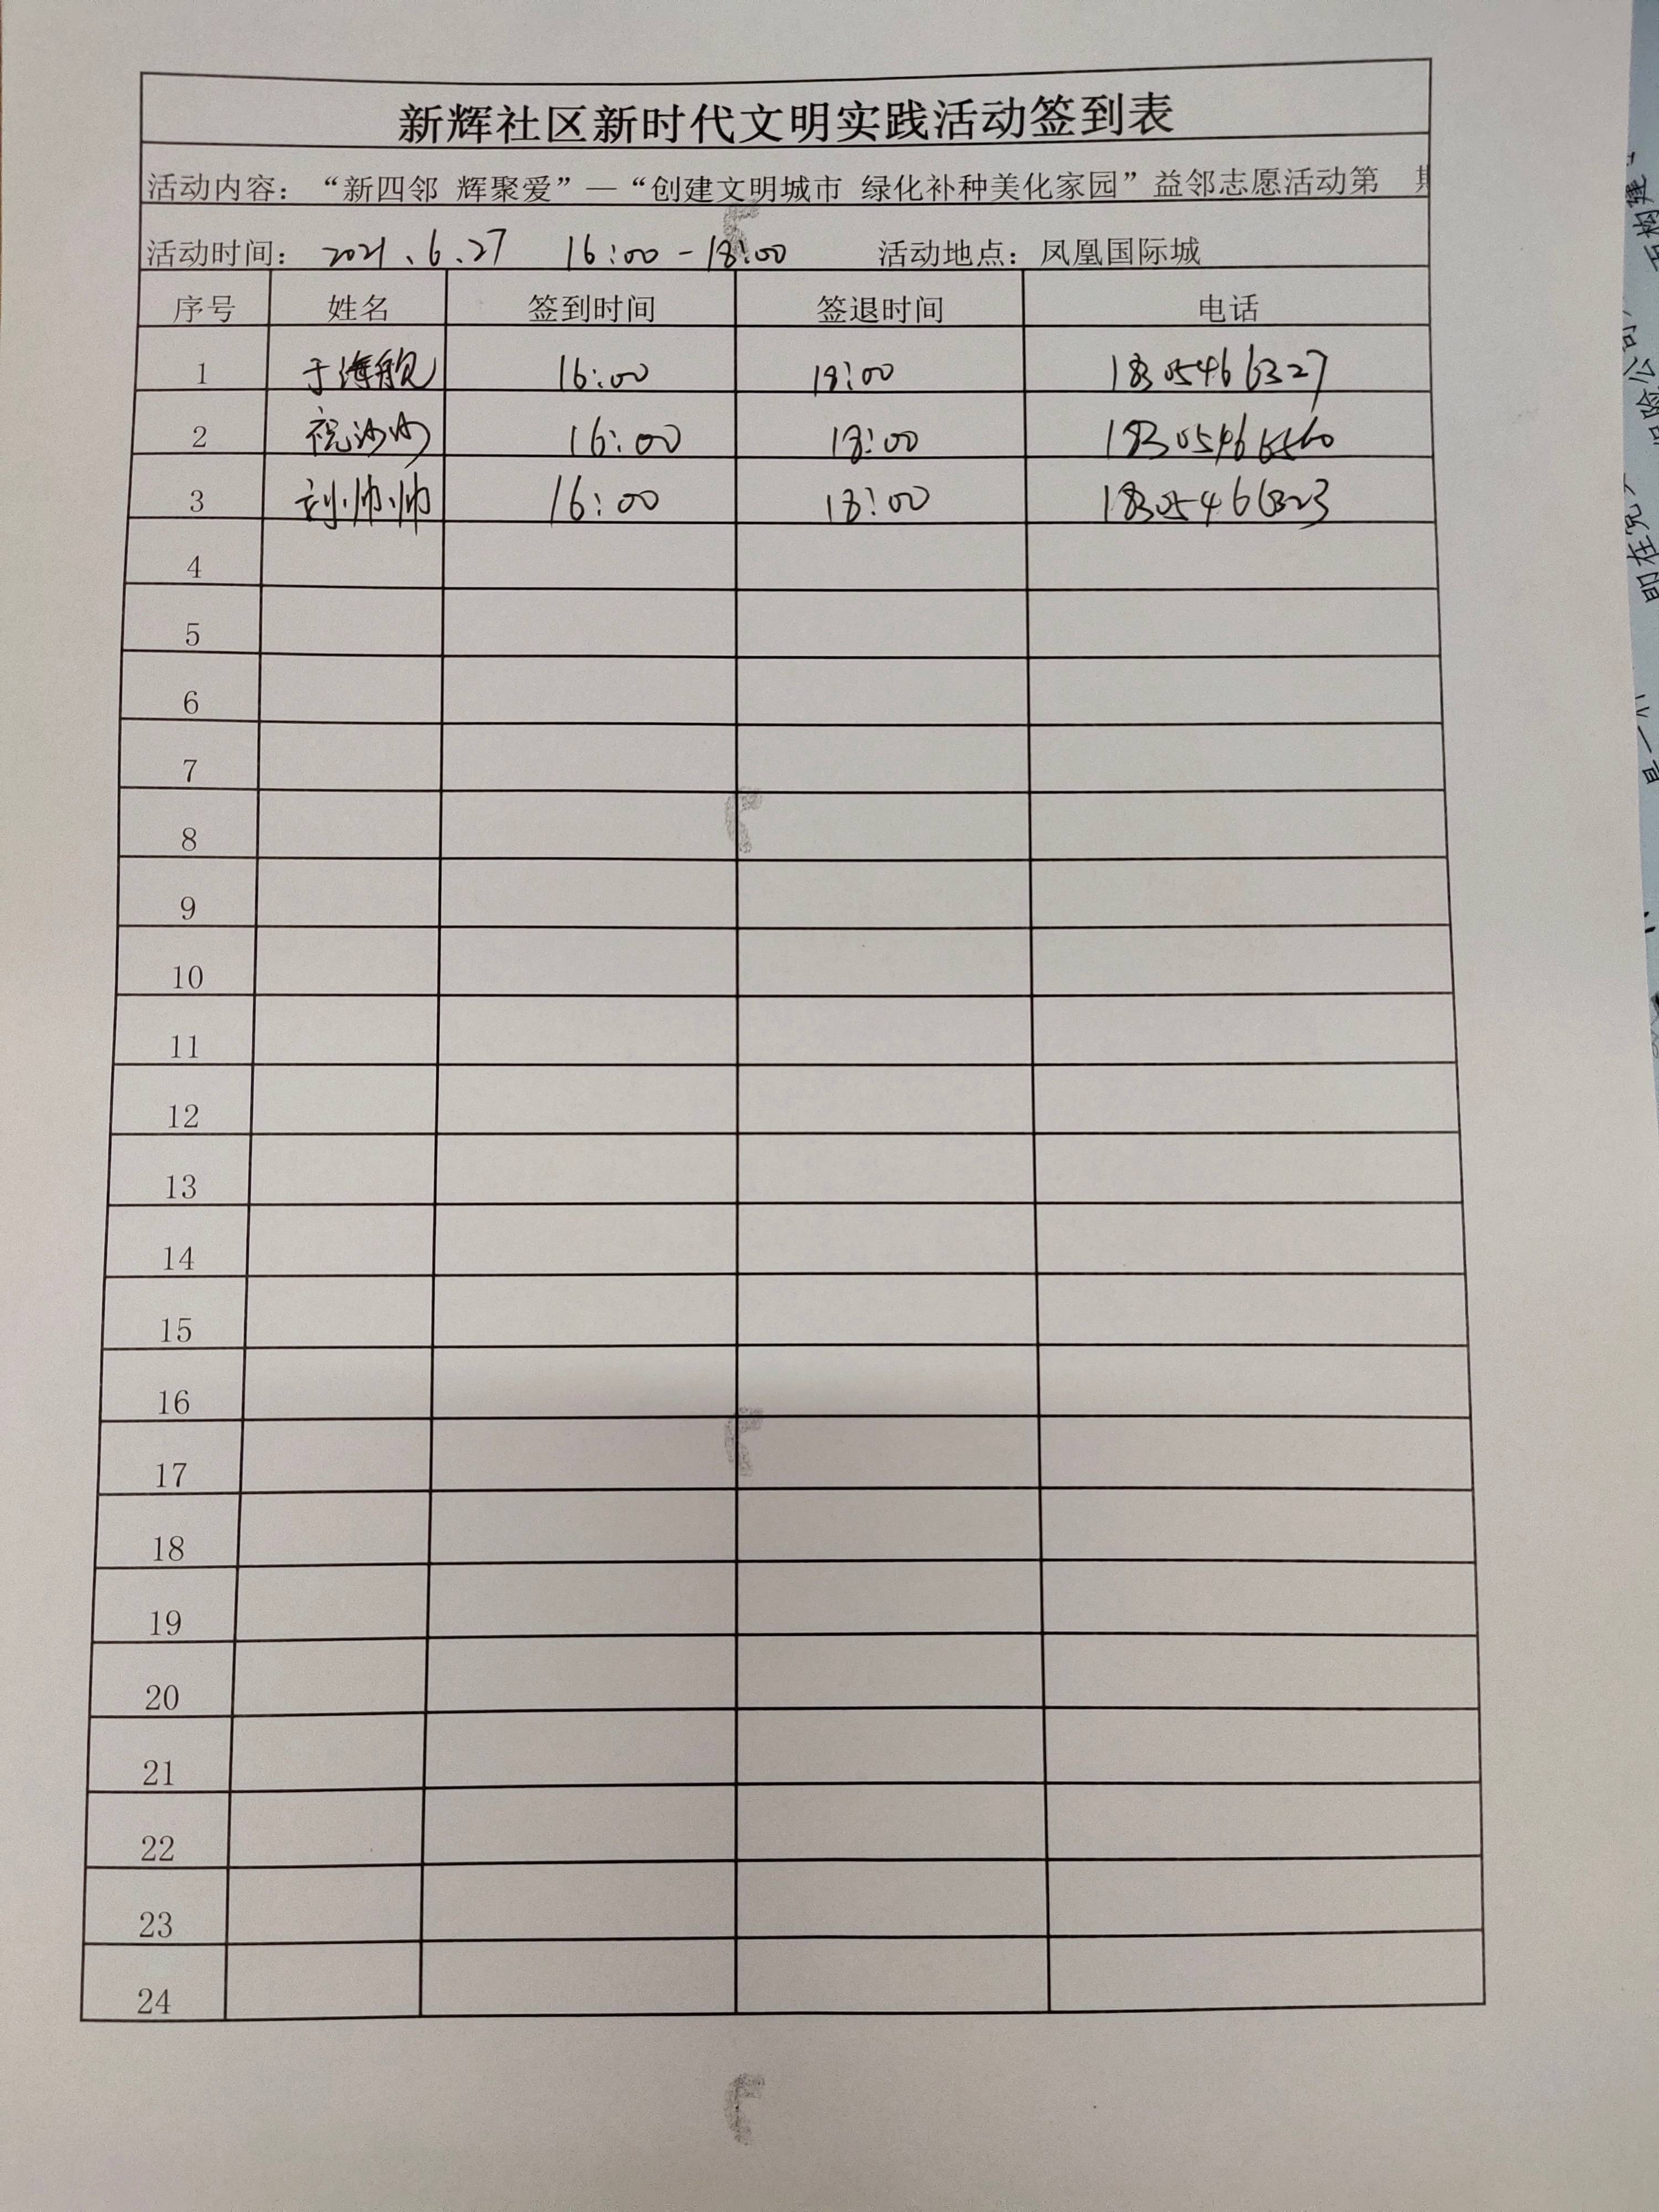 新辉社区新时代文明实践活动签到表
活动内容：“新四邻 辉聚爱”—“创建文明城市 绿化补种美化家园”益邻志愿活动第 期
活动时间： 2021.6.27 16:00-18:00 活动地点：凤凰国际城
序号 姓名 签到时间 签退时间 电话
1 于海舰 16:00 18:00 18305466327
2 祝沙沙 16:00 18:00
3 刘帅帅 16:00 18:00 18305466323
4
5
6
7
8
9
10
11
12
13
14
15
16
17
18
19
20
21
22
23
24